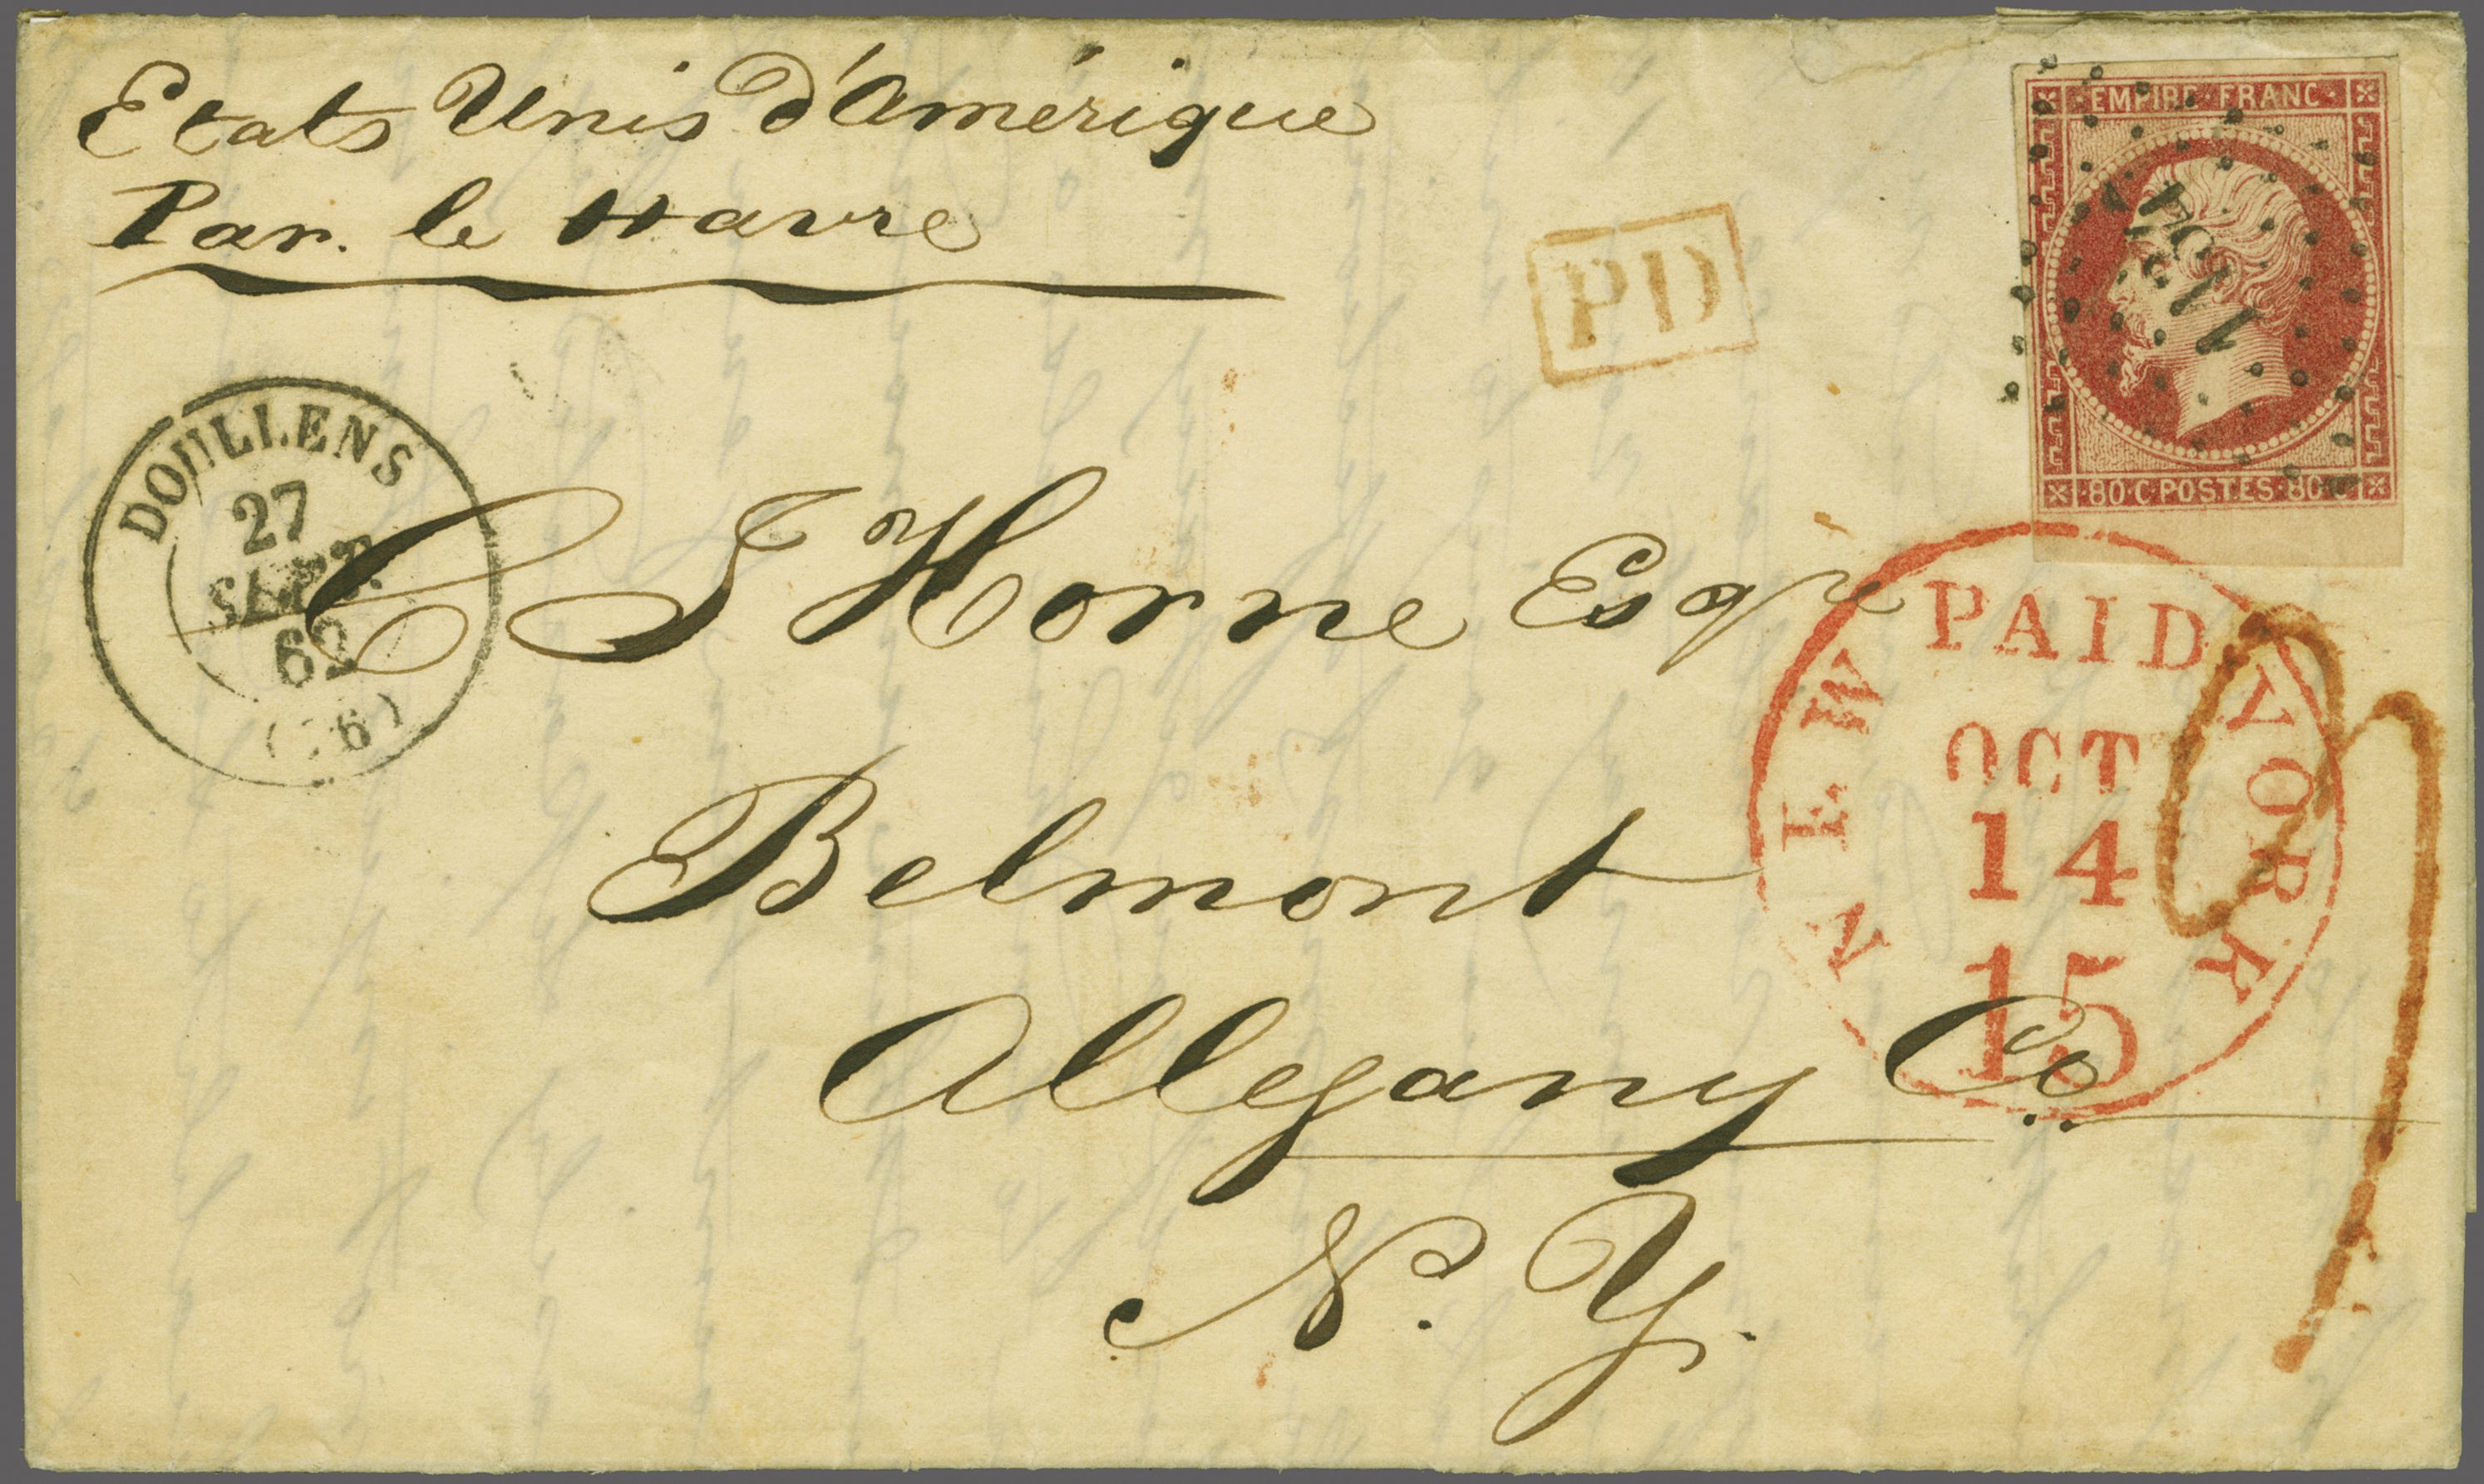 Etats Unis d'Amérique
Par. le Havre
PD
EMPIRE·FRANC·
·80·C·POSTES·80·C·
DOULLENS
27
SEPT.
62
(76)
C J Horne Esqr
Belmont
Allegany Co.
N. Y.
NEW PAID YORK
OCT
14
15